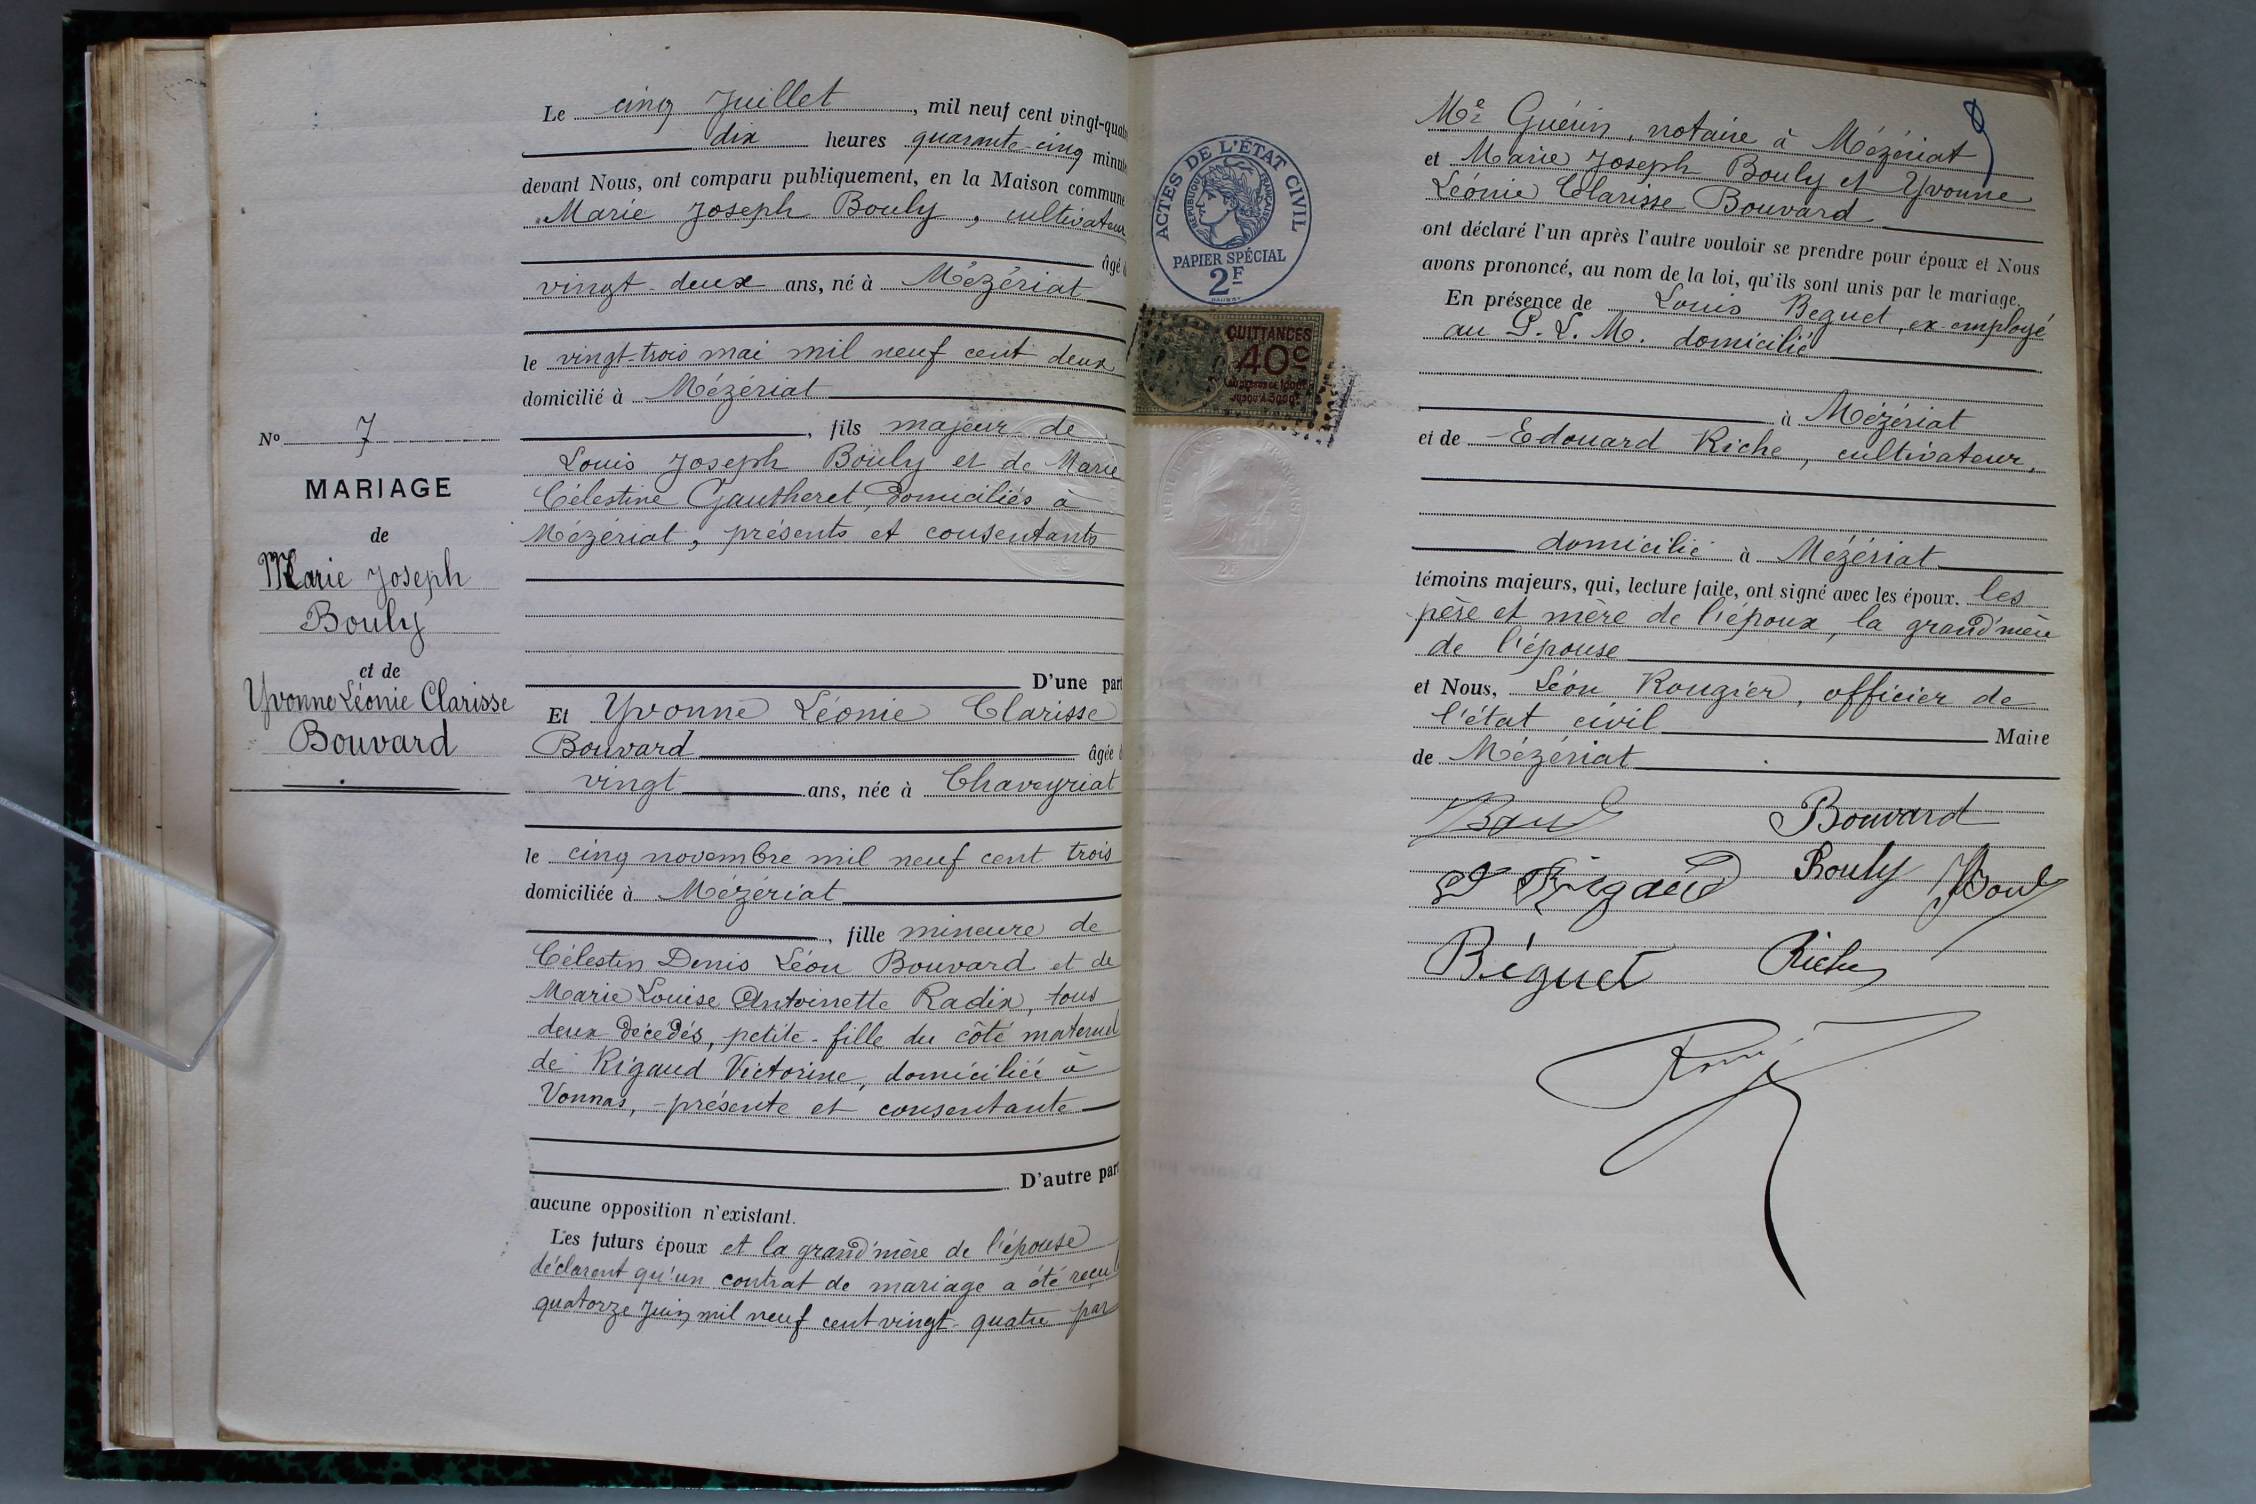 Le cinq Juillet, mil neuf cent vingt-quatr
dix heures quarante-cinq minute
devant Nous, ont comparu publiquement, en la Maison commune
Marie Joseph Bouly, cultivateur
âgé d
vingt-deux ans, né à Mézériat
le vingt-trois mai mil neuf cent deux
domicilié à Mézériat
, fils majeur de
Louis Joseph Bouly et de Marie
Célestine Gautheret, domiciliés à
Mézériat, présents et consentants
D'une part
Et Yvonne Léonie Clarisse
Bouvard âgée d
vingt ans, née à Chaveyriat
le cinq novembre mil neuf cent trois
domiciliée à Mézériat
, fille mineure de
Célestin Denis Léon Bouvard et de
Marie Louise Antoinette Radix, tous
deux décédés, petite-fille du côté maternel
de Rigaud Victorine, domiciliée à
Vonnas, présente et consentante
D'autre part
aucune opposition n'existant.
Les futurs époux et la grand'mère de l'épouse
déclarent qu'un contrat de mariage a été reçu l
quatorze Juin mil neuf cent vingt-quatre par
No 7
MARIAGE
de
Marie Joseph
Bouly
et de
Yvonne Léonie Clarisse
Bouvard
ACTES DE L'ÉTAT CIVIL
RÉPUBLIQUE FRANÇAISE
PAPIER SPÉCIAL
2F
QUITTANCES
40c
Me Guérin, notaire à Mézériat
et Marie Joseph Bouly et Yvonne
Léonie Clarisse Bouvard
ont déclaré l'un après l'autre vouloir se prendre pour époux et Nous
avons prononcé, au nom de la loi, qu'ils sont unis par le mariage.
En présence de Louis Beguet, ex-employé
au P. L. M. domicilié
à Mézériat
et de Edouard Riche, cultivateur,
domicilié à Mézériat
témoins majeurs, qui, lecture faite, ont signé avec les époux. les
père et mère de l'époux, la grand'mère
de l'épouse
et Nous, Léon Rougier, officier de
l'état civil Maire
de Mézériat
Bouvard
Rigaud Bouly
Béguet Riche